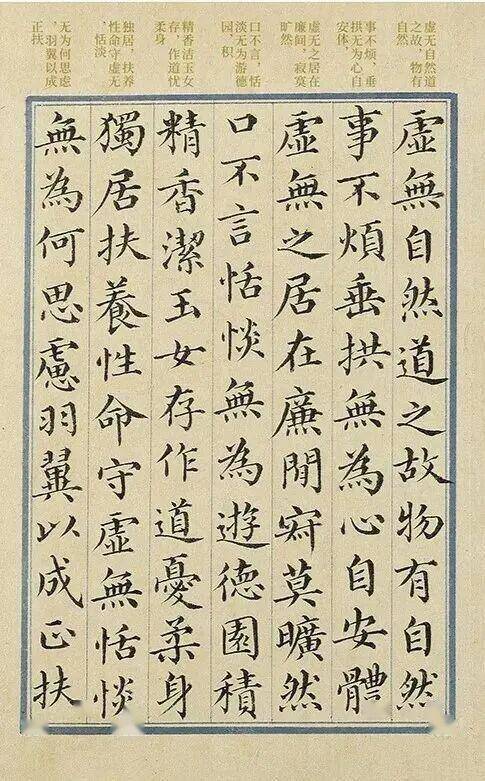 虚无自然道
之故,物有
自然
事不烦,垂
拱无为心自
安体,
虚无之居在
廉间,寂寞
旷然
口不言,恬
淡无为游德
园,积
精香洁玉女
存,作道忧
柔身
独居,扶养
性命守虚无
,恬淡
无为何思虑
,羽翼以成
正扶
虛無自然道之故物有自然
事不煩垂拱無為心自安體
虛無之居在廉閒寂莫曠然
口不言恬惔無為遊德園積
精香潔玉女存作道憂柔身
獨居扶養性命守虛無恬惔
無為何思慮羽翼以成正扶